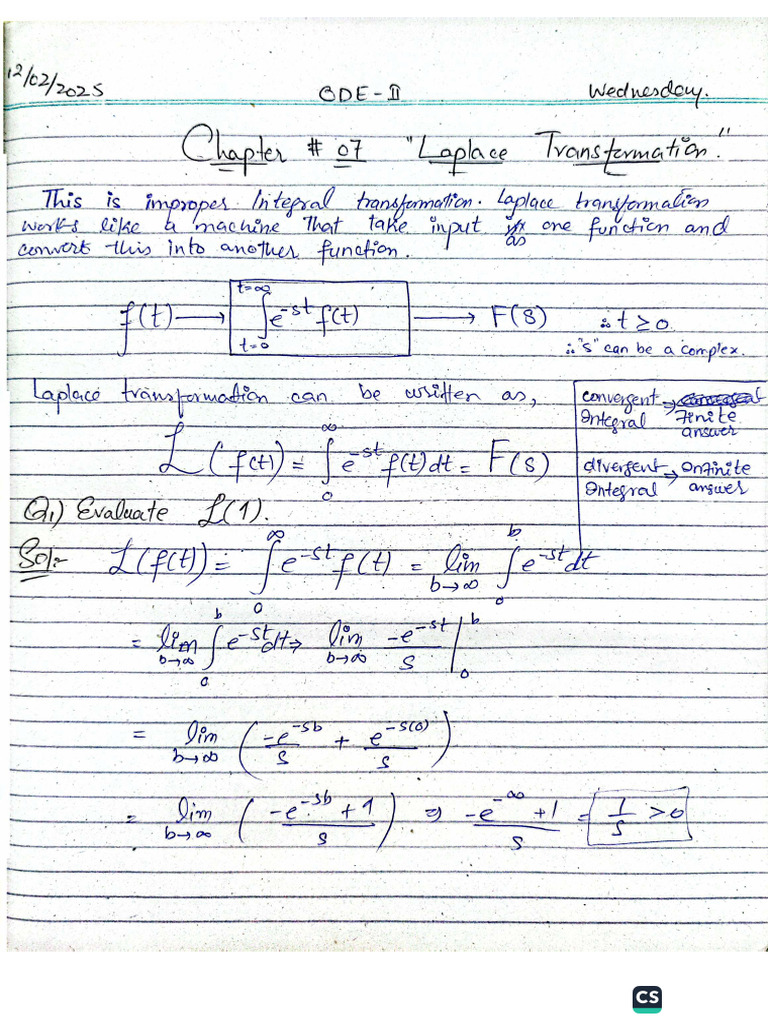 12/02/2025 ODE-II Wednesday.
Chapter # 07 "Laplace Transformation."
This is improper Integral transformation. Laplace transformation
works like a machine that take input as one function and
convert this into another function.
f(t) → ∫_{t=0}^{t=∞} e^{-st} f(t) → F(s) ∴ t ≥ 0.
∴ "s" can be a complex.
Laplace transformation can be written as,
L(f(t)) = ∫_0^∞ e^{-st} f(t) dt = F(s)
convergent Integral → Finite answer
divergent Integral → Infinite answer
Q1) Evaluate L(1).
Sol:- L(f(t)) = ∫_0^∞ e^{-st} f(t) = lim_{b→∞} ∫_0^b e^{-st} dt
= lim_{b→∞} ∫_0^b e^{-st} dt ⇒ lim_{b→∞} -e^{-st}/s |_0^b
= lim_{b→∞} (-e^{-sb}/s + e^{-s(0)}/s)
= lim_{b→∞} ((-e^{-sb} + 1)/s) ⇒ (-e^{-∞} + 1)/s = 1/s > 0
CS